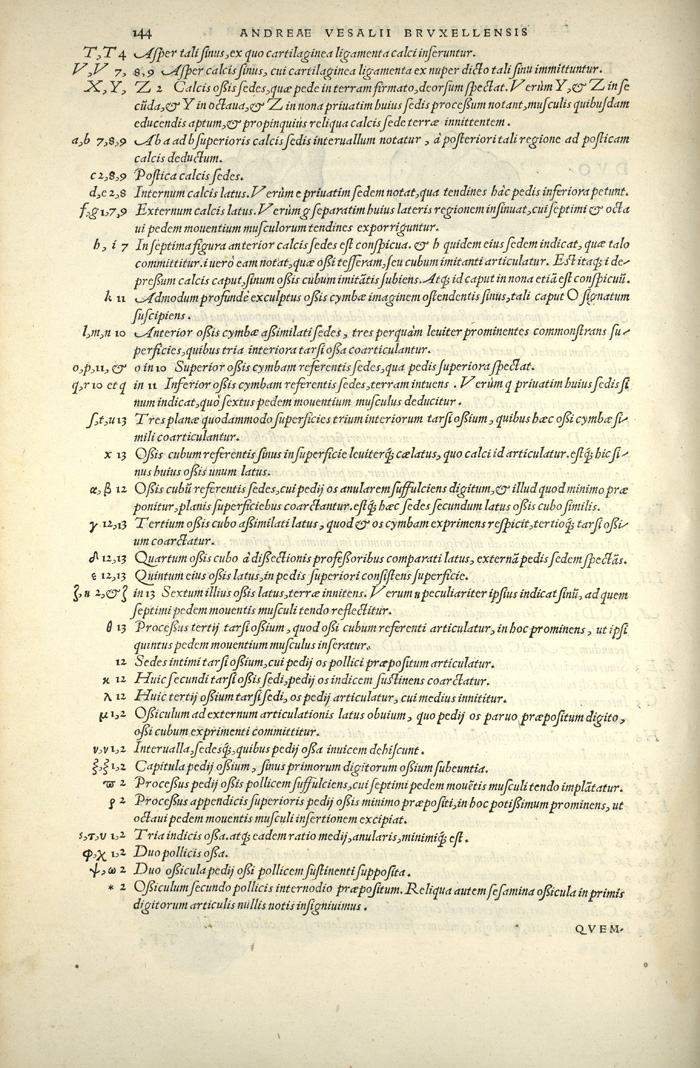 144 ANDREAE VESALII BRVXELLENSIS
T, T 4 Asper tali sinus, ex quo cartilaginea ligamenta calci inseruntur.
V, V 7, 8, 9 Asper calcis sinus, cui cartilaginea ligamenta ex nuper dicto tali sinu immittuntur.
X, Y, Z 2 Calcis oßis sedes, quæ pede in terram firmato, deorsum spectat. Verùm Y, & Z in se
cũda, & Y in octaua, & Z in nona priuatim huius sedis proceßum notant, musculis quibusdam
educendis aptum, & propinquius reliqua calcis sede terræ innittentem.
a, b 7, 8, 9 Ab a ad b superioris calcis sedis interuallum notatur, à posteriori tali regione ad posticam
calcis deductum.
c 2, 8, 9 Postica calcis sedes.
d, e 2, 8 Internum calcis latus. Verùm e priuatim sedem notat, qua tendines hàc pedis inferiora petunt.
f, g 1, 7, 9 Externum calcis latus. Verùm g separatim huius lateris regionem insinuat, cui septimi & octa
ui pedem mouentium musculorum tendines exporriguntur.
h, i 7 In septima figura anterior calcis sedes est conspicua. & h quidem eius sedem indicat, quæ talo
committitur. i uerò eam notat, quæ oßi tesseram, seu cubum imitanti articulatur. Est itaq́; i de-
preßum calcis caput, sinum oßis cubum imitãtis subiens. Atq; id caput in nona etiã est conspicuũ.
k 11 Admodum profundè exculptus oßis cymbæ imaginem ostendentis sinus, tali caput O signatum
suscipiens.
l, m, n 10 Anterior oßis cymbæ aßimilati sedes, tres perquàm leuiter prominentes commonstrans su-
perficies, quibus tria interiora tarsi oßa coarticulantur.
o, p, 11, & o in 10 Superior oßis cymbam referentis sedes, qua pedis superiora spectat.
q, r 10 et q in 11 Inferior oßis cymbam referentis sedes, terram intuens. Verùm q priuatim huius sedis si
num indicat, quò sextus pedem mouentium musculus deducitur.
s, t, u 13 Tres planæ quodammodo superficies trium interiorum tarsi oßium, quibus hæc oßi cymbæ si-
mili coarticulantur.
x 13 Oßis cubum referentis sinus in superficie leuiterq́; cælatus, quo calci id articulatur. estq́; hic si-
nus huius oßis unum latus.
α, β 12 Oßis cubũ referentis sedes, cui pedij os anularem suffulciens digitum, & illud quod minimo præ
ponitur, planis superficiebus coarctantur. estq́; hæc sedes secundum latus oßis cubo similis.
γ 12, 13 Tertium oßis cubo aßimilati latus, quod & os cymbam exprimens respicit, tertioq́; tarsi oßi-
um coarctatur.
δ 12, 13 Quartum oßis cubo à dißectionis profeßoribus comparati latus, externã pedis sedem spectãs.
ε 12, 13 Quintum eius oßis latus, in pedis superiori consistens superficie.
ζ, η 2, & ζ in 13 Sextum illius oßis latus, terræ innitens. Verum η peculiariter ipsius indicat sinũ, ad quem
septimi pedem mouentis musculi tendo reflectitur.
θ 13 Proceßus tertij tarsi oßium, quod oßi cubum referenti articulatur, in hoc prominens, ut ipsi
quintus pedem mouentium musculus inseratur.
12 Sedes intimi tarsi oßium, cui pedij os pollici præpositum articulatur.
κ 12 Huic secundi tarsi oßis sedi, pedij os indicem sustinens coarctatur.
λ 12 Huic tertij oßium tarsi sedi, os pedij articulatur, cui medius innititur.
μ 1, 2 Oßiculum ad externum articulationis latus obuium, quo pedij os paruo præpositum digito,
oßi cubum exprimenti committitur.
ν, ν 1, 2 Interualla, sedesq́;, quibus pedij oßa inuicem dehiscunt.
ξ, ξ 1, 2 Capitula pedij oßium, sinus primorum digitorum oßium subeuntia.
ϖ 2 Proceßus pedij oßis pollicem suffulciens, cui septimi pedem mouẽtis musculi tendo implãtatur.
ρ 2 Proceßus appendicis superioris pedij oßis minimo præpositi, in hoc potißimum prominens, ut
octaui pedem mouentis musculi insertionem excipiat.
ς, τ, υ 1, 2 Tria indicis oßa. atq́; eadem ratio medij, anularis, minimiq́; est.
φ, χ 1, 2 Duo pollicis oßa.
ψ, ω 2 Duo oßicula pedij oßi pollicem sustinenti supposita.
* 2 Oßiculum secundo pollicis internodio præpositum. Reliqua autem sesamina oßicula in primis
digitorum articulis nullis notis insigniuimus.
QVEM-